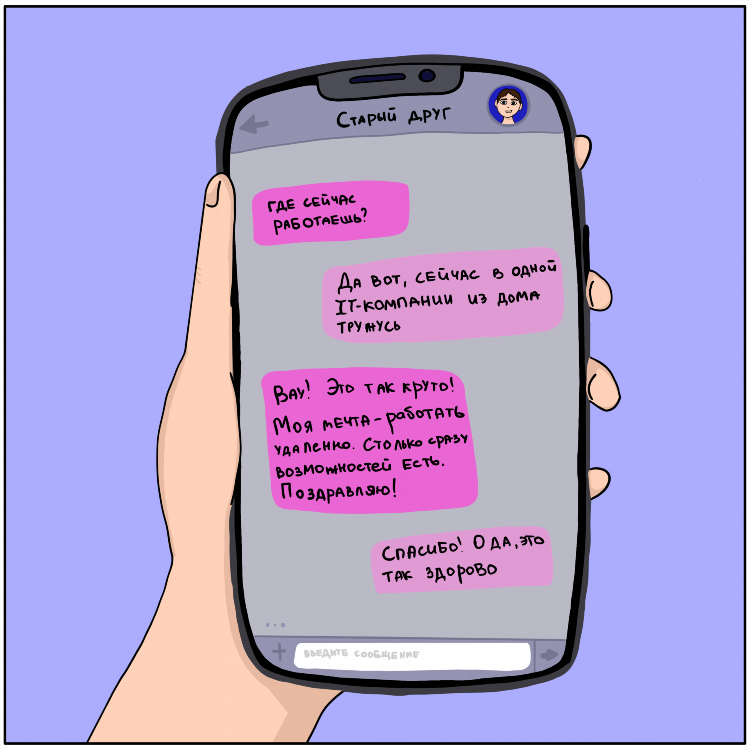 Старый друг
Где сейчас
работаешь?
Да вот, сейчас в одной
IT-компании из дома
тружусь
Вау! Это так круто!
Моя мечта - работать
удаленно. Столько сразу
возможностей есть.
Поздравляю!
Спасибо! О да, это
так здорово
Введите сообщение